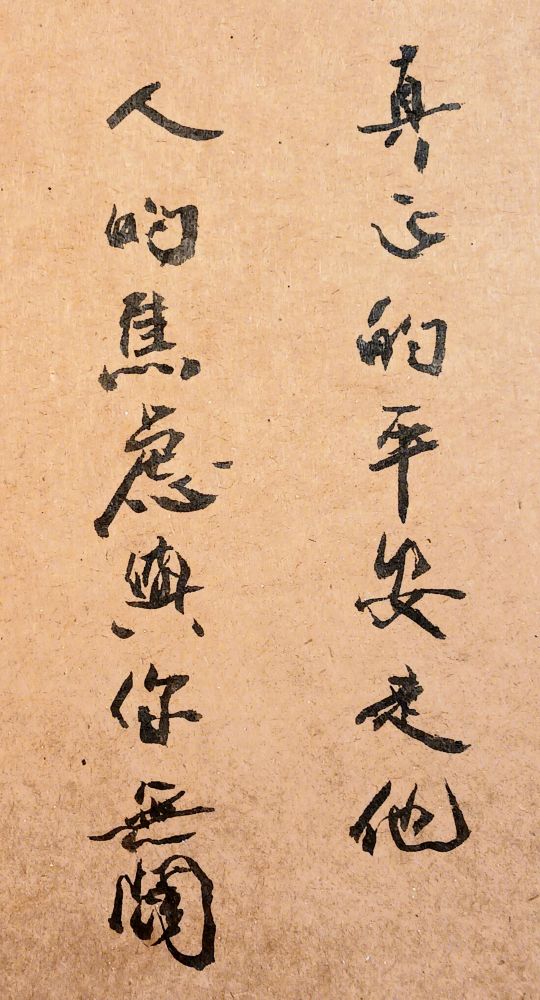 真正的平安是他
人的焦慮與你無關